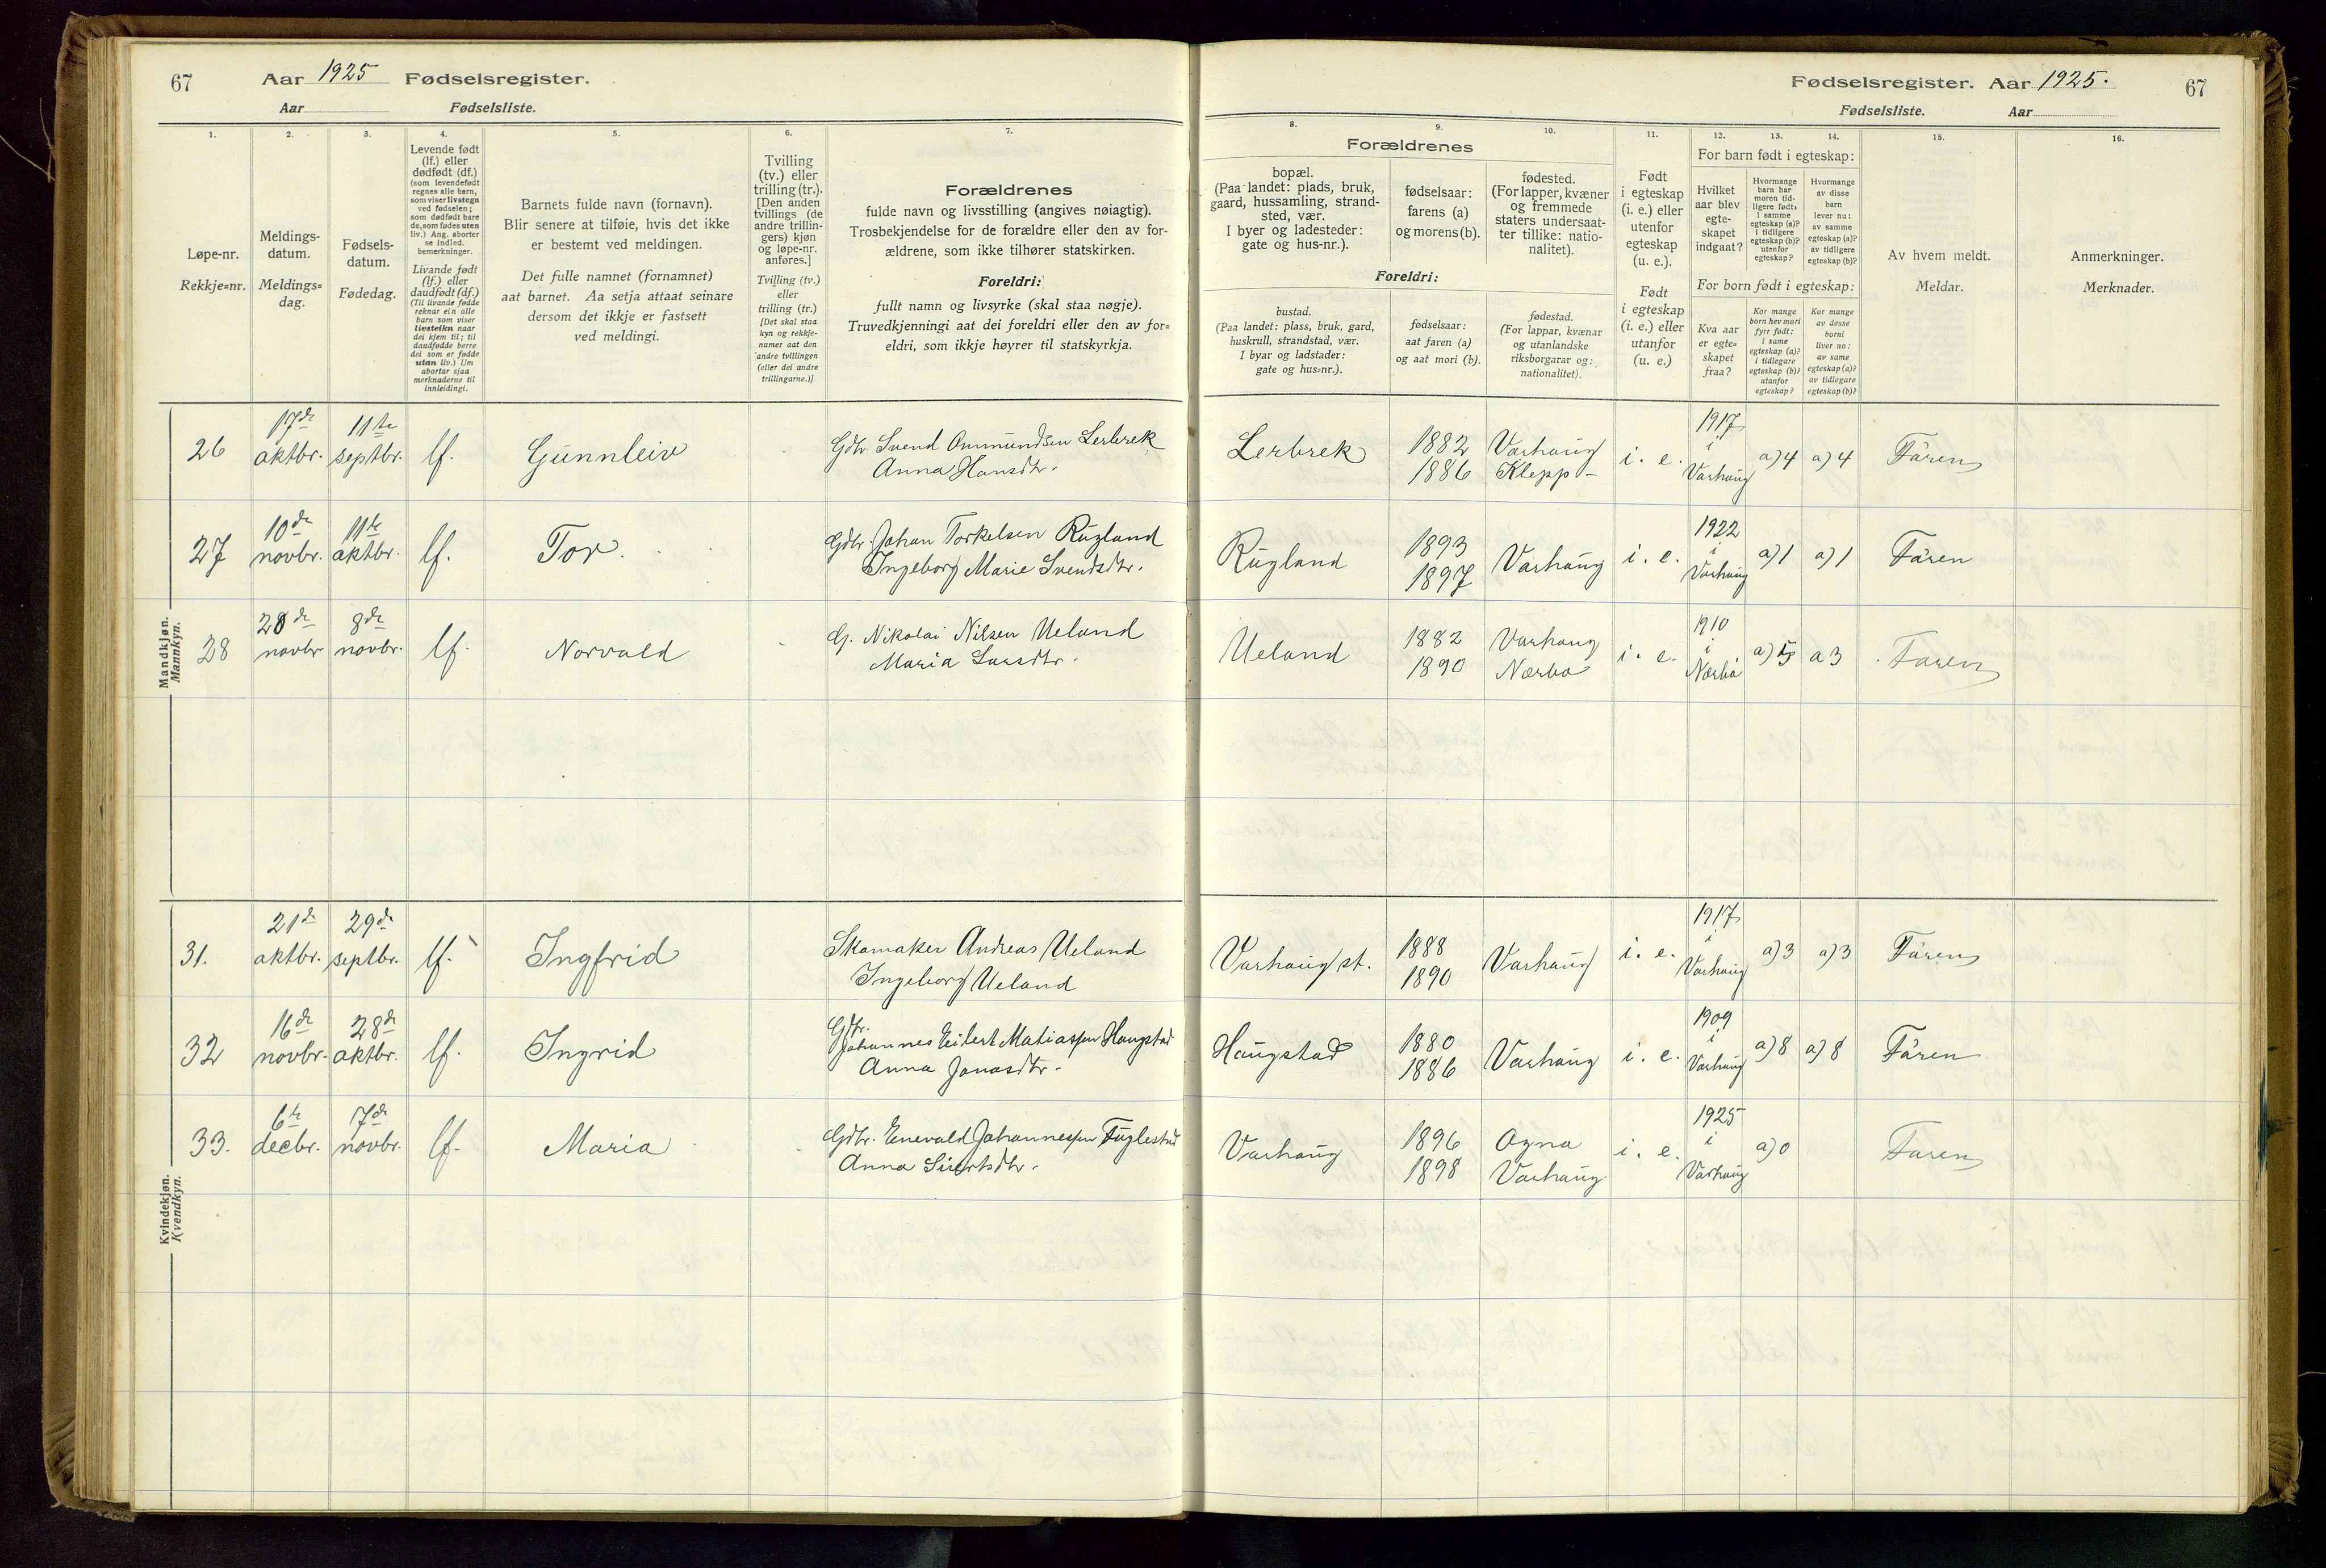 67 Aar 1925 Fødselsregister.
Aar Fødselsliste.
1. 2. 3. 4. 5. 6. 7.
Løpe-nr.
Rekkje=nr.
Meldings-
datum.
Meldings=
dag.
Fødsels-
datum.
Fødedag.
Levende født
(lf.) eller
dødfødt (df.)
(som levendefødt
regnes alle barn,
som viser livstegn
ved fødselen;
som dødfødt bare
de, som fødes uten
liv.) Ang. aborter
se indled.
bemerkninger.
Livande født
(lf.) eller
daudfødt (df.)
(Til livande fødde
reknar ein alle
barn som viser
livsteikn naar
dei kjem til; til
daudfødde berre
dei som er fødde
utan liv.) Um
abortar sjaa
merknaderne til
innleidingi.
Barnets fulde navn (fornavn).
Blir senere at tilføie, hvis det ikke
er bestemt ved meldingen.
Det fulle namnet (fornamnet)
aat barnet. Aa setja attaat seinare
dersom det ikkje er fastsett
ved meldingi.
Tvilling
(tv.) eller
trilling (tr.).
[Den anden
tvillings (de
andre trillin-
gers) kjøn
og løpe-nr.
anføres.]
Tvilling (tv.)
eller
trilling (tr.)
[Det skal staa
kyn og rekkje-
numer aat den
andre tvillingen
(eller dei andre
trillingarne.)]
Forældrenes
fulde navn og livsstilling (angives nøiagtig).
Trosbekjendelse for de forældre eller den av for-
ældrene, som ikke tilhører statskirken.
Foreldri:
fullt namn og livsyrke (skal staa nøgje).
Truvedkjenningi aat dei foreldri eller den av for=
eldri, som ikkje høyrer til statskyrkja.
Mandkjøn.
Mannkyn.
17de 11te
26 oktbr. septbr. lf. Gunnleiv Gdbr. Svend Ommundsen Lerbrek
Anna Hansdtr.
10de 11te
27 novbr. oktbr. lf. Tor. Gdbr. Johan Torkelsen Rugland
Ingeborg Marie Svendsdtr.
28de 8de
28 novbr. novbr. lf. Norvald G. Nikolai Nilsen Ueland
Maria Larsdtr.
21de 29de
31. oktbr. septbr. lf. Ingfrid Skomaker Andreas Ueland
Ingeborg Ueland
16de 28de
32 novbr. oktbr. lf. Ingrid Gdbr.
Johannes Eilert Matiassen Haugstad
Anna Jonasdtr.
6te 7de
33. decbr. novbr. lf. Maria Gdbr. Enevald Johannessen Fuglestad
Anna Sivertsdtr.
Kvindekjøn.
Kvendkyn.
Fødselsregister. Aar 1925. 67
Fødselsliste. Aar
8. 9. 10. 11. 12. 13. 14. 15. 16.
Forældrenes
bopæl.
(Paa landet: plads, bruk,
gaard, hussamling, strand-
sted, vær.
I byer og ladesteder:
gate og hus-nr.).
fødselsaar:
farens (a)
og morens (b).
fødested.
(For lapper, kvæner
og fremmede
staters undersaat-
ter tillike: natio-
nalitet).
Foreldri:
bustad.
(Paa landet: plass, bruk, gard,
huskrull, strandstad, vær.
I byar og ladstader:
gate og hus=nr.).
fødselsaar:
aat faren (a)
og aat mori (b).
fødestad.
(For lappar, kvænar
og utanlandske
riksborgarar og:
nationalitet).
Født
i egteskap
(i. e.) eller
utenfor
egteskap
(u. e.).
Født
i egteskap
(i. e.) eller
utanfor
(u. e.)
For barn født i egteskap:
Hvilket
aar blev
egte-
skapet
indgaat?
Hvormange
barn har
moren tid-
ligere født:
i samme
egteskap (a)?
i tidligere
egteskap (b)?
utenfor
egteskap?
Hvormange
av disse
barn
lever nu:
av samme
egteskap (a)?
av tidligere
egteskap (b)?
For born født i egteskap:
Kva aar
er egte=
skapet
fraa?
Kor mange
born hev mori
fyrr født:
i same
egteskap (a)?
i tidlegare
egteskap (b)?
utanfor
egteskap?
Kor mange
av desse
borni
liver no:
av same
egteskap (a)?
av tidlegare
egteskap (b)?
Av hvem meldt.
Meldar.
Anmerkninger.
Merknader.
1917
Lerbrek 1882 Varhaug i. e. i a) 4 a) 4 Faren
1886 Klepp - Varhaug
1922
Rugland 1893 Varhaug i. e. i a) 1 a) 1 Faren
1897 Varhaug
1910
Ueland 1882 Varhaug i. e. i a) 5 a 3 Faren
1890 Nærbø Nærbø
1917
Varhaug st. 1888 Varhaug i. e. i a) 3 a) 3 Faren
1890 Varhaug
1909
Haugstad 1880 Varhaug i. e. i a) 8 a) 8 Faren
1886 Varhaug
1925
Varhaug 1896 Ogna i. e. i a) 0 Faren
1898 Varhaug Varhaug